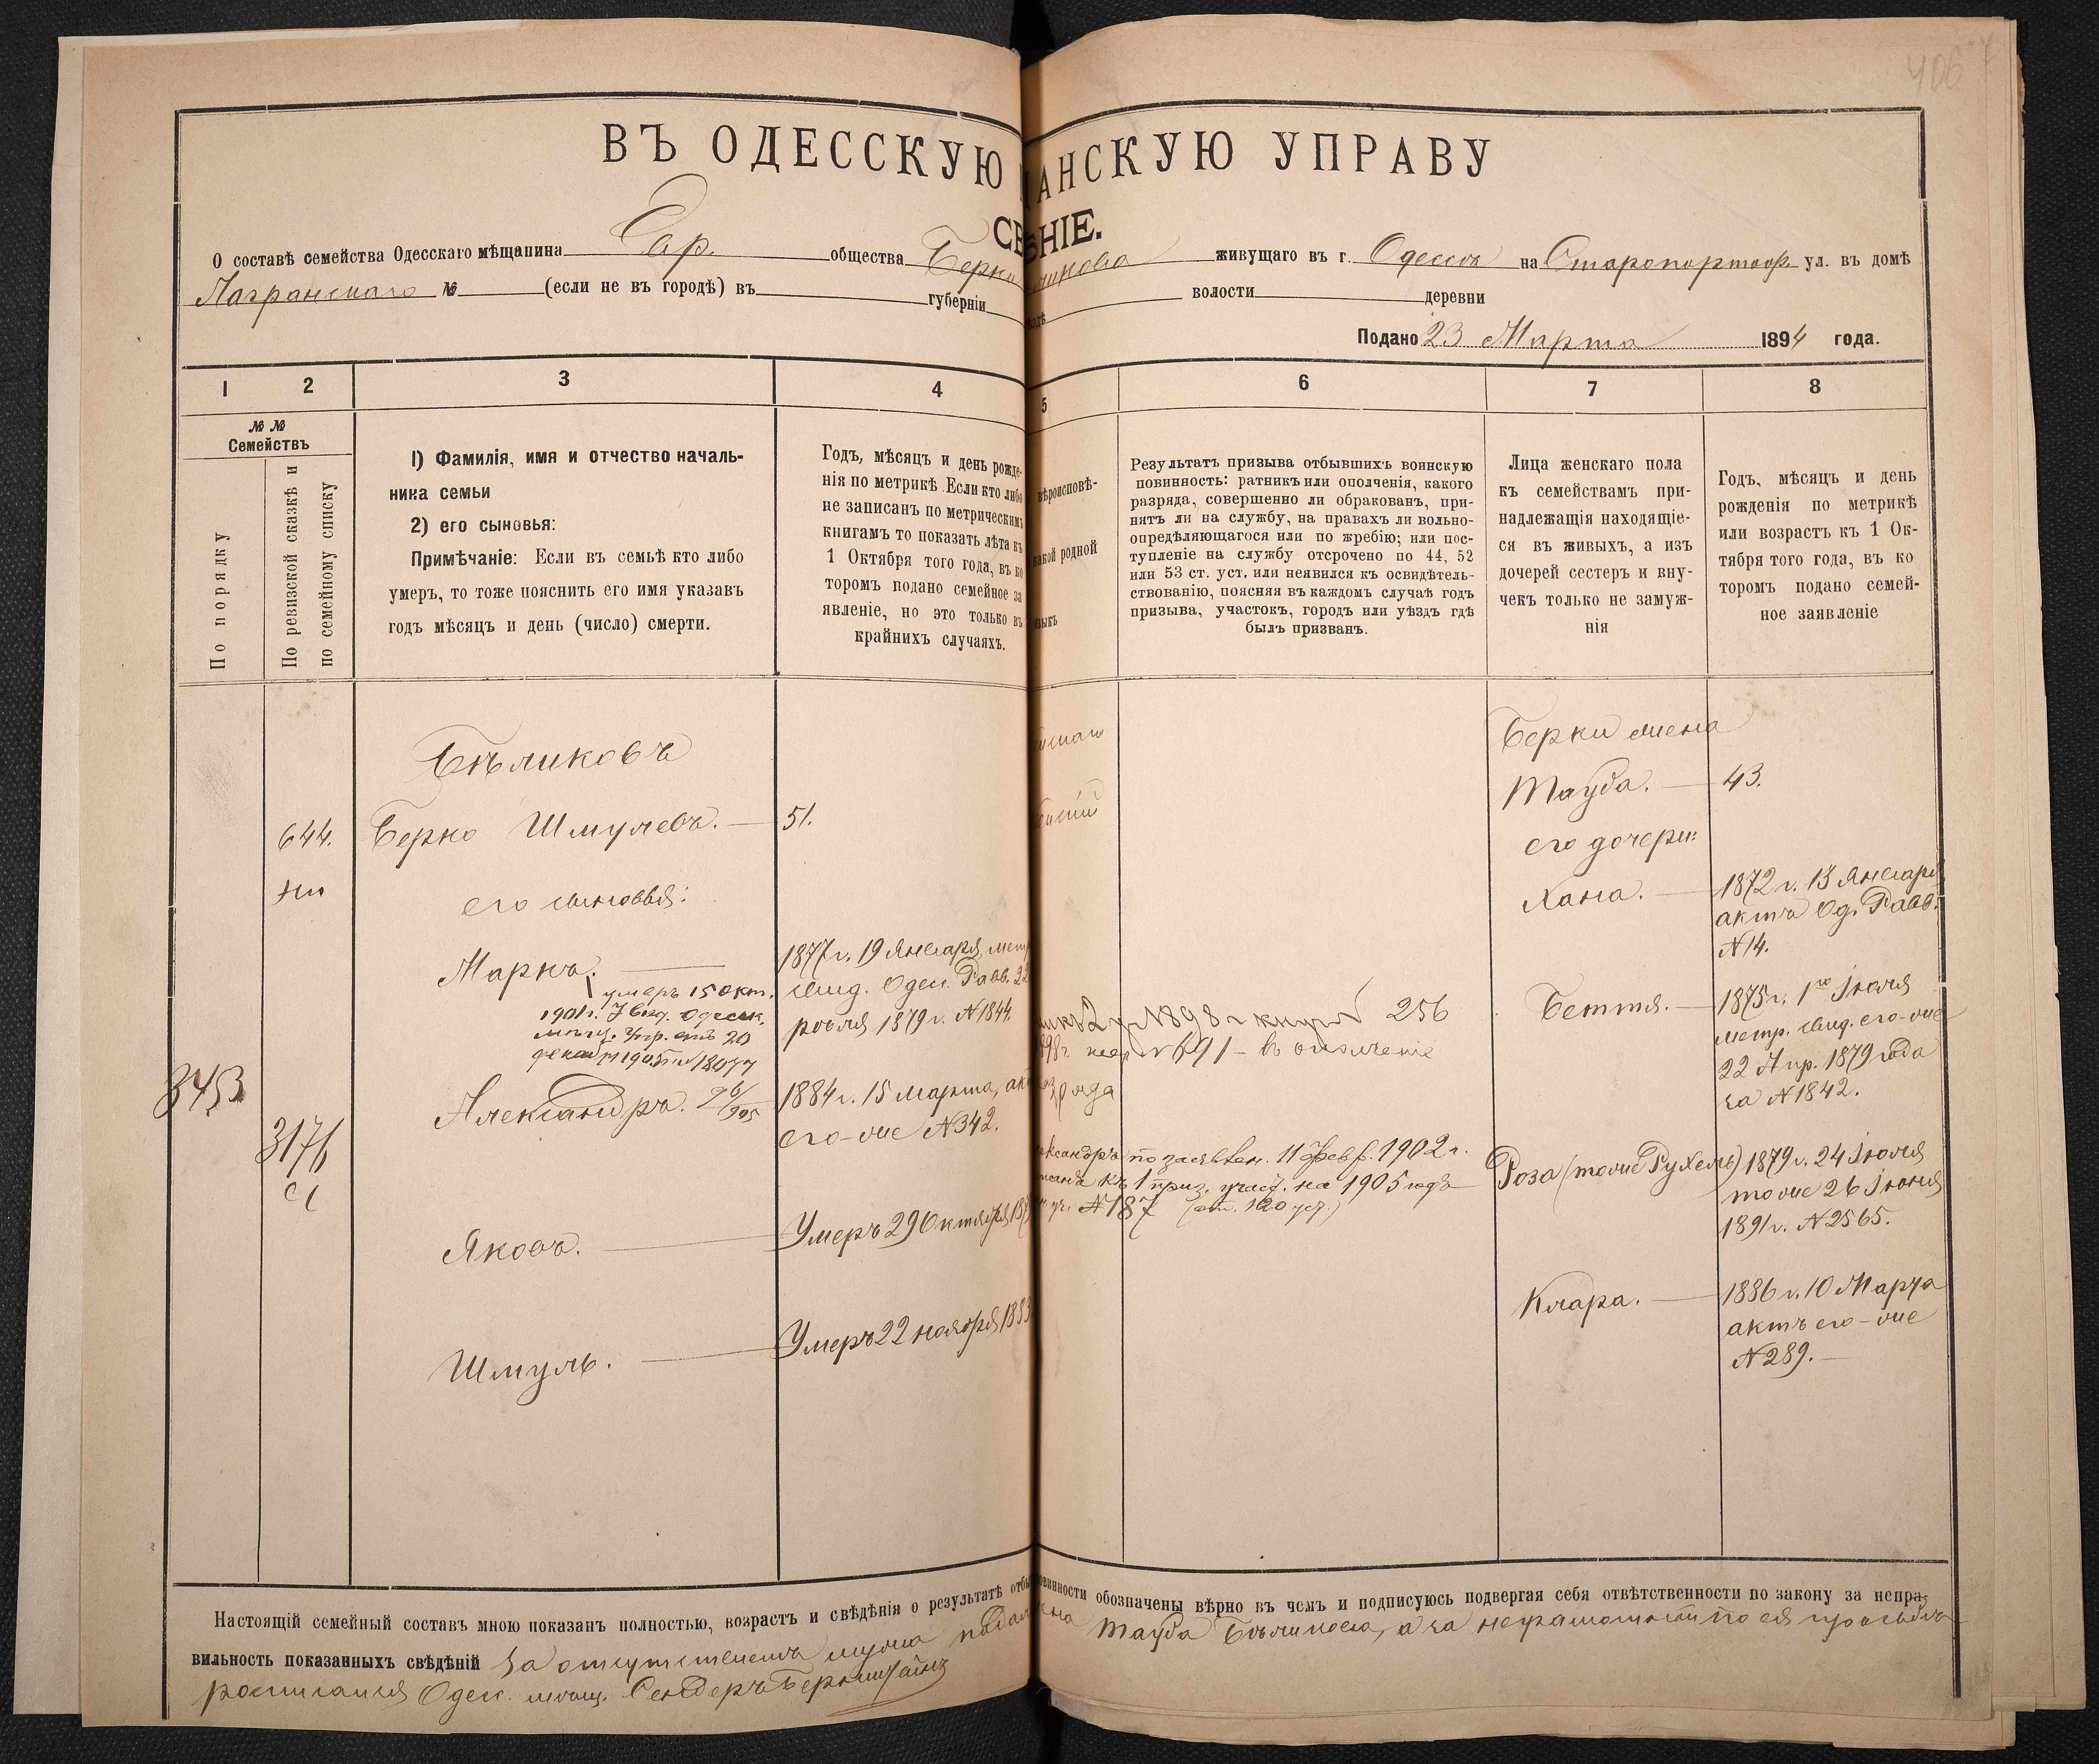 406
ВЪ ОДЕССКУЮ АНСКУЮ УПРАВУ
СВ НІЕ.
О составѣ семейства Одесскаго мѣщанина Евр. общества Берки ликова живущаго въ г. Одессѣ на Старопортоф. ул. въ домѣ
№ (если не въ городѣ) въ губерніи волости деревни
Подано 23 Марта 1894 года.
1 2 3 4 5 6 7 8
№№
Семействъ
По порядку
По ревизской сказкѣ и
по семейному списку
1) Фамилія, имя и отчество началь-
ника семьи
2) его сыновья:
Примѣчаніе: Если въ семьѣ кто либо
умеръ, то тоже пояснить его имя указавъ
годъ мѣсяцъ и день (число) смерти.
Годъ, мѣсяцъ и день рожде-
нія по метрикѣ. Если кто либо
не записанъ по метрическимъ
книгамъ то показать лѣта къ
1 Октября того года, въ ко
торомъ подано семейное за
явленіе, но это только въ
крайнихъ случаяхъ.
вѣроисповѣ-
какой родной
языкъ
Результатъ призыва отбывшихъ воинскую
повинность: ратникъ или ополченія, какого
разряда, совершенно ли обракованъ, при-
нятъ ли на службу, на правахъ ли вольно-
опредѣляющагося или по жребію; или пос-
тупленіе на службу отсрочено по 44, 52
или 53 ст. уст. или неявился къ освидѣтель-
ствованію, поясняя въ каждомъ случаѣ годъ
призыва, участокъ, городъ или уѣздъ гдѣ
былъ призванъ.
Лица женскаго пола
къ семействамъ при-
надлежащія находящіе-
ся въ живыхъ, а изъ
дочерей сестеръ и вну-
чекъ только не замуж-
нія
Годъ, мѣсяцъ и день
рожденія по метрикѣ
или возрастъ къ 1 Ок-
тября того года, въ ко
торомъ подано семей-
ное заявленіе
Бѣликовъ
644. Берко Шмулевъ. — 51.
его сыновья:
Маркъ. — 1877 г. 19 Января, мет
свид. Одес. Равв. 22
1879 г. №1844.
умеръ 15 окт.
1901 г. Одесск.
мѣщ. Упр. отъ 20
декаб 1905 г. № 18077
3453
3176
Александръ. 26/905 1884 г. 15 марта, ак
его-же №342.
Яковъ. — Умеръ 29 Октября 18
Шмуль. — Умеръ 22 ноября 1883
1898 г. 256
№ 691 — въ ополченіе
ряда
по заявлен. 11 Февр. 1902 г.
къ 1 приз. учас. на 1905 годъ
уч. №187 (ст. 120 уст.)
Берки жена
Тауба. — 43.
его дочери:
Хана. — 1872 г. 13 Января
актъ Од. Равв.
№14.
Беття. — 1875 г. 1го Іюля
метр. свид. его-же
22 Апр. 1879 года
за №1842.
Роза (тоже Рухель) 1879 г. 24 Іюля
тоже 26 Іюня
1891 г. №2565.
Клара. — 1886 г. 10 Марта
актъ его-же
№289. —
Настоящій семейный составъ мною показанъ полностью, возрастъ и свѣдѣнія о результатѣ отбы овинности обозначены вѣрно въ чемъ и подписуюсь подвергая себя отвѣтственности по закону за непра-
вильность показанныхъ свѣдѣній За отсутствіемъ мужа жена Тауба Бѣликова, а за неграмотностію по ея просьбѣ
росписался Одес. мѣщ. Сендеръ Бернштайнъ